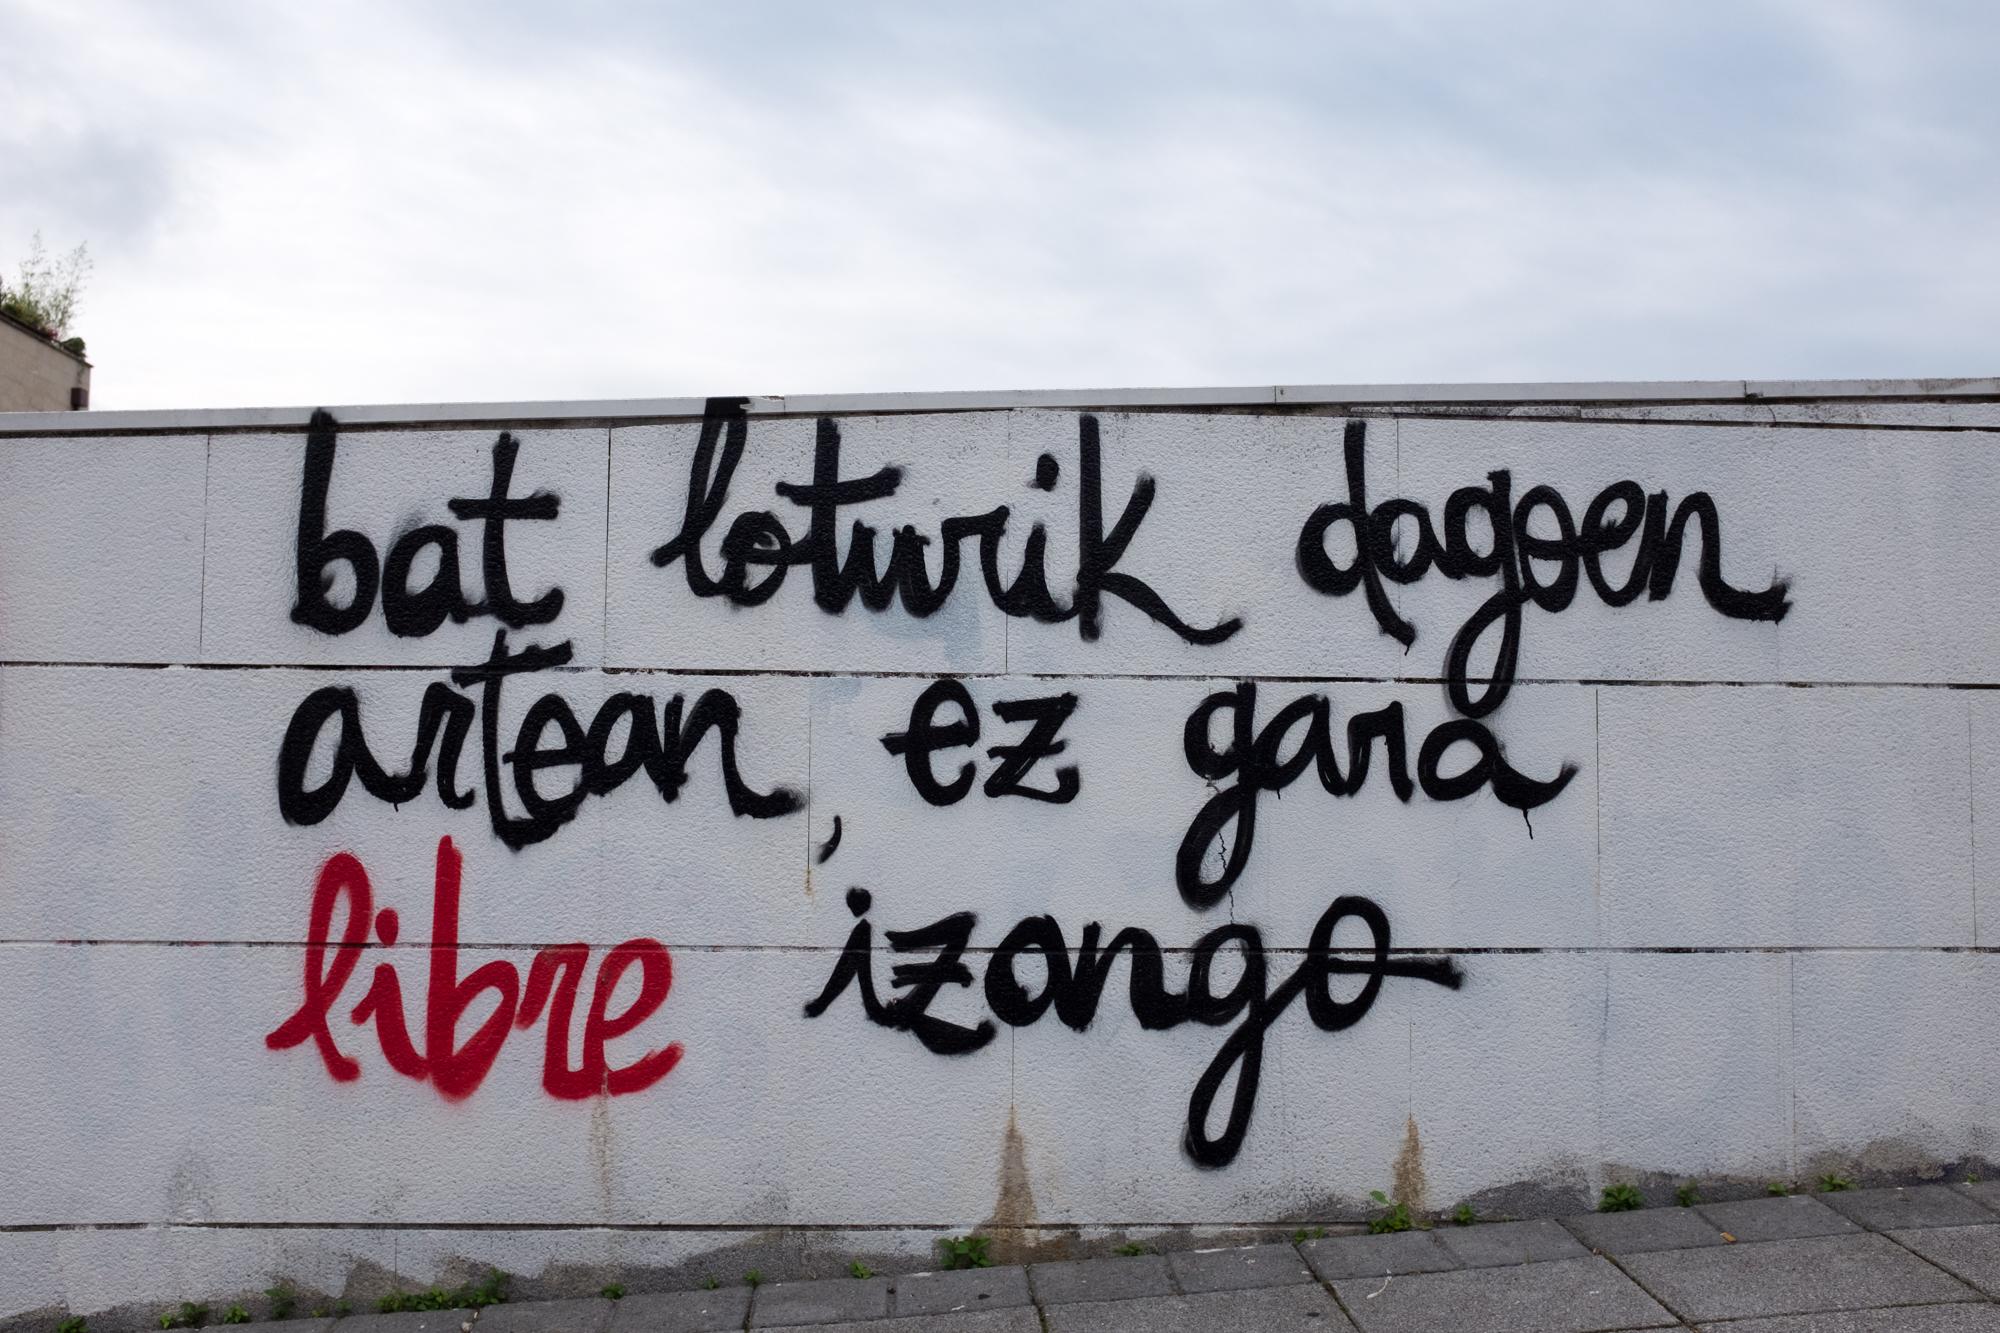 bat loturik dagoen
artean, ez gara
libre izongo